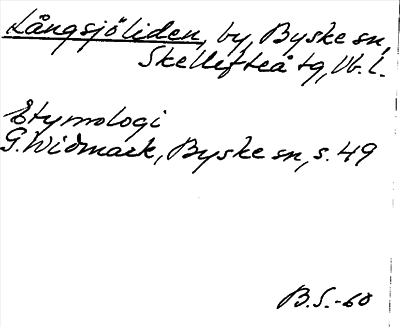 Långsjöliden, by, Byske sn,
Skellefteå tg, Vb. l.
Etymologi
G. Widmark, Byske sn, s. 49
B.S.-60